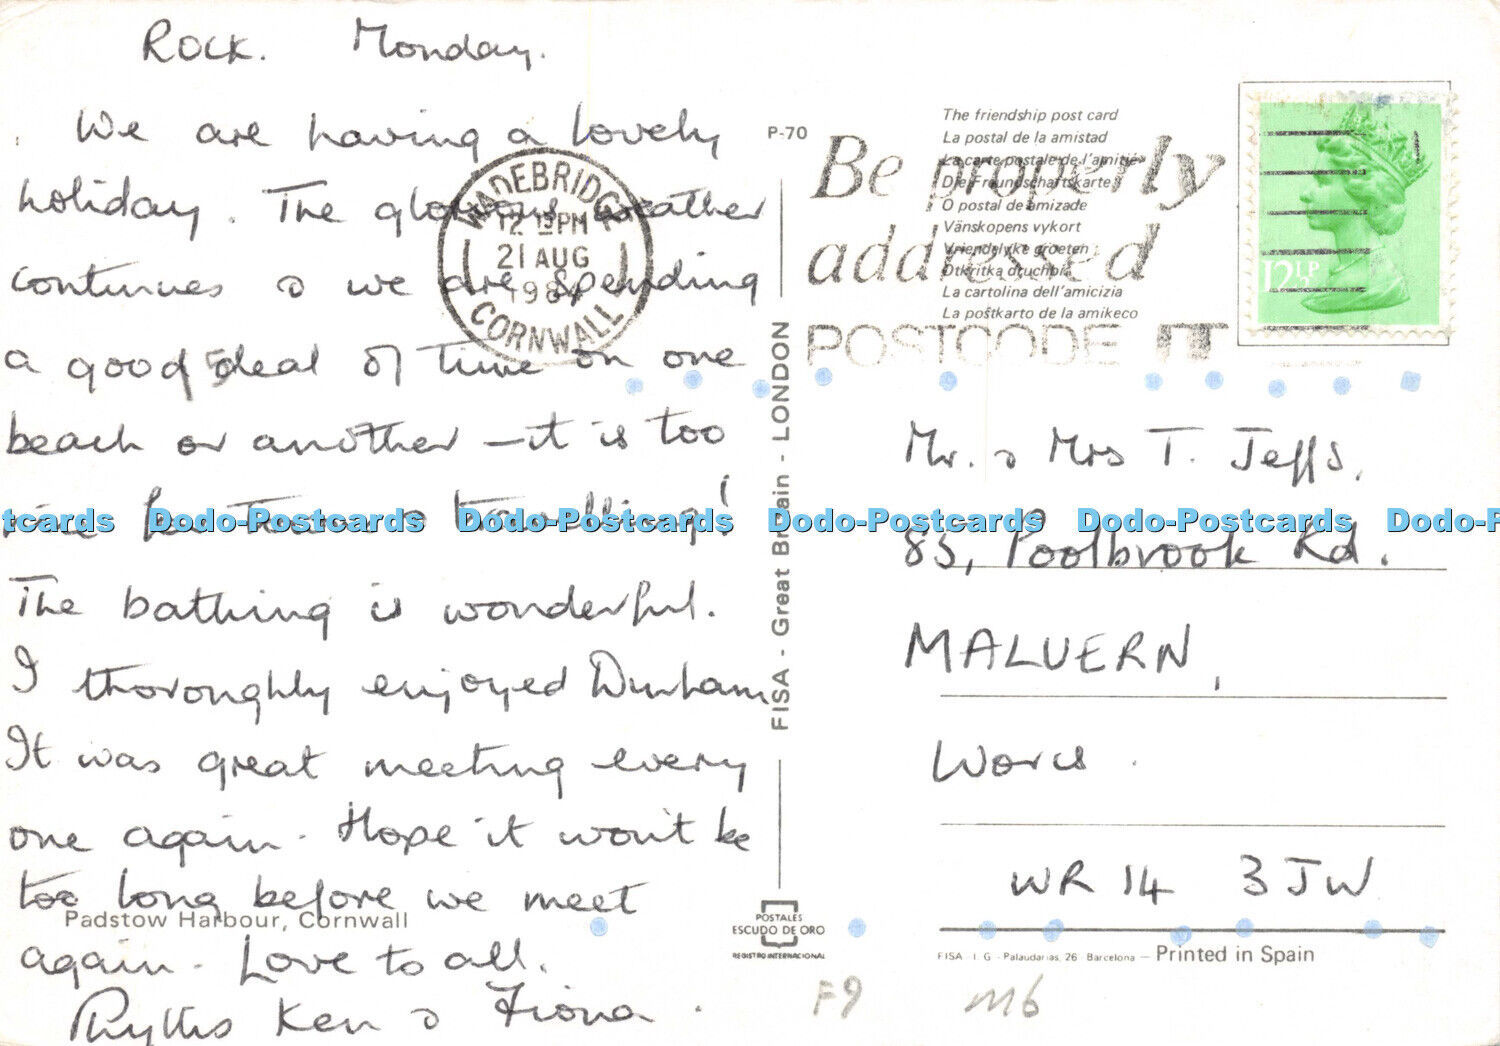 Rock. Monday.
We are having a lovely
holiday. The glorious weather
continues & we are spending
a good deal of time on one
beach or another – it is too
hot travelling!
The bathing is wonderful.
I thoroughly enjoyed Durham
It was great meeting every
one again. Hope it won't be
too long before we meet
again. Love to all.
Phyllis Ken & Fiona.
Padstow Harbour, Cornwall
WADEBRIDGE
12 15 PM
21 AUG
1984
CORNWALL
P-70
FISA - Great Britain - LONDON
The friendship post card
La postal de la amistad
La carte postale de l'amitié
Die Freundschaftskarte
O postal de amizade
Vänskopens vykort
Vriendelyke groeten
Otkritka druchbi
La cartolina dell'amicizia
La poŝtkarto de la amikeco
Be properly
addressed
POSTCODE IT
12½P
Mr. & Mrs T. Jeffs,
85, Poolbrook Rd.
MALVERN,
Worcs.
WR14 3JW
POSTALES
ESCUDO DE ORO
REGISTRO INTERNACIONAL
FISA - I. G. - Palaudarias, 26 Barcelona — Printed in Spain
F9
M6
Dodo-Postcards Dodo-Postcards Dodo-Postcards Dodo-Postcards